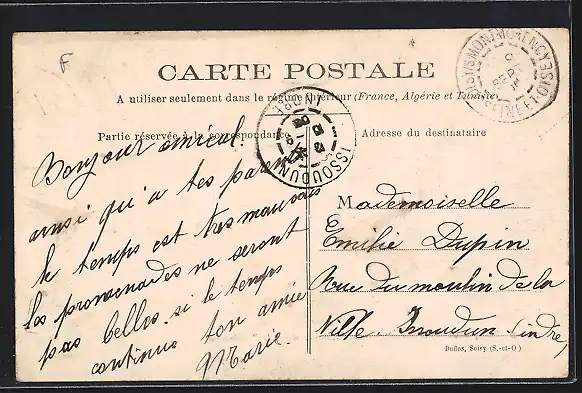 F
CARTE POSTALE
A utiliser seulement dans le régime intérieur (France, Algérie et Tunisie)
Partie réservée à la correspondance
Adresse du destinataire
ISSOUDUN INDRE
Bonjour amical.
ainsi qu'a tes parents
le temps est tres mauvais
les promenades ne seront
pas belles. si le temps
continue ton amie
Marie.
Mademoiselle
Emilie Dupin
Rue du moulin de la
Ville. Issoudun (indre)
Duflos, Soisy (S.-et-O)